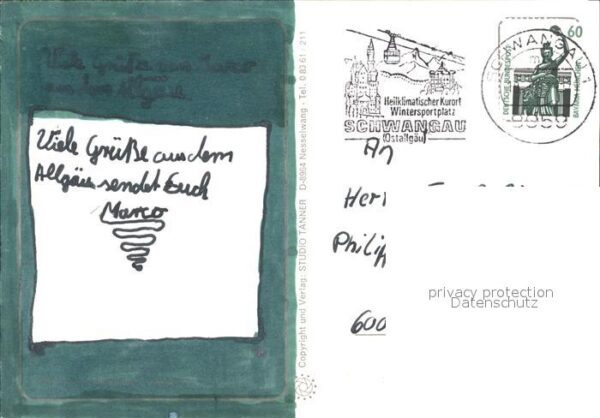 Viele Grüße aus
Viele Grüße aus dem
Allgäu sendet Euch
Marco
Copyright und Verlag: STUDIO TANNER D-8964 Nesselwang · Tel. 08361 - 211
Heilklimatischer Kurort
Wintersportplatz
SCHWANGAU
(Ostallgäu)
SCHWANGAU 1
60
DEUTSCHE BUNDESPOST
BAVARIA MÜNCHEN
An
Her
Philip
600
privacy protection
Datenschutz